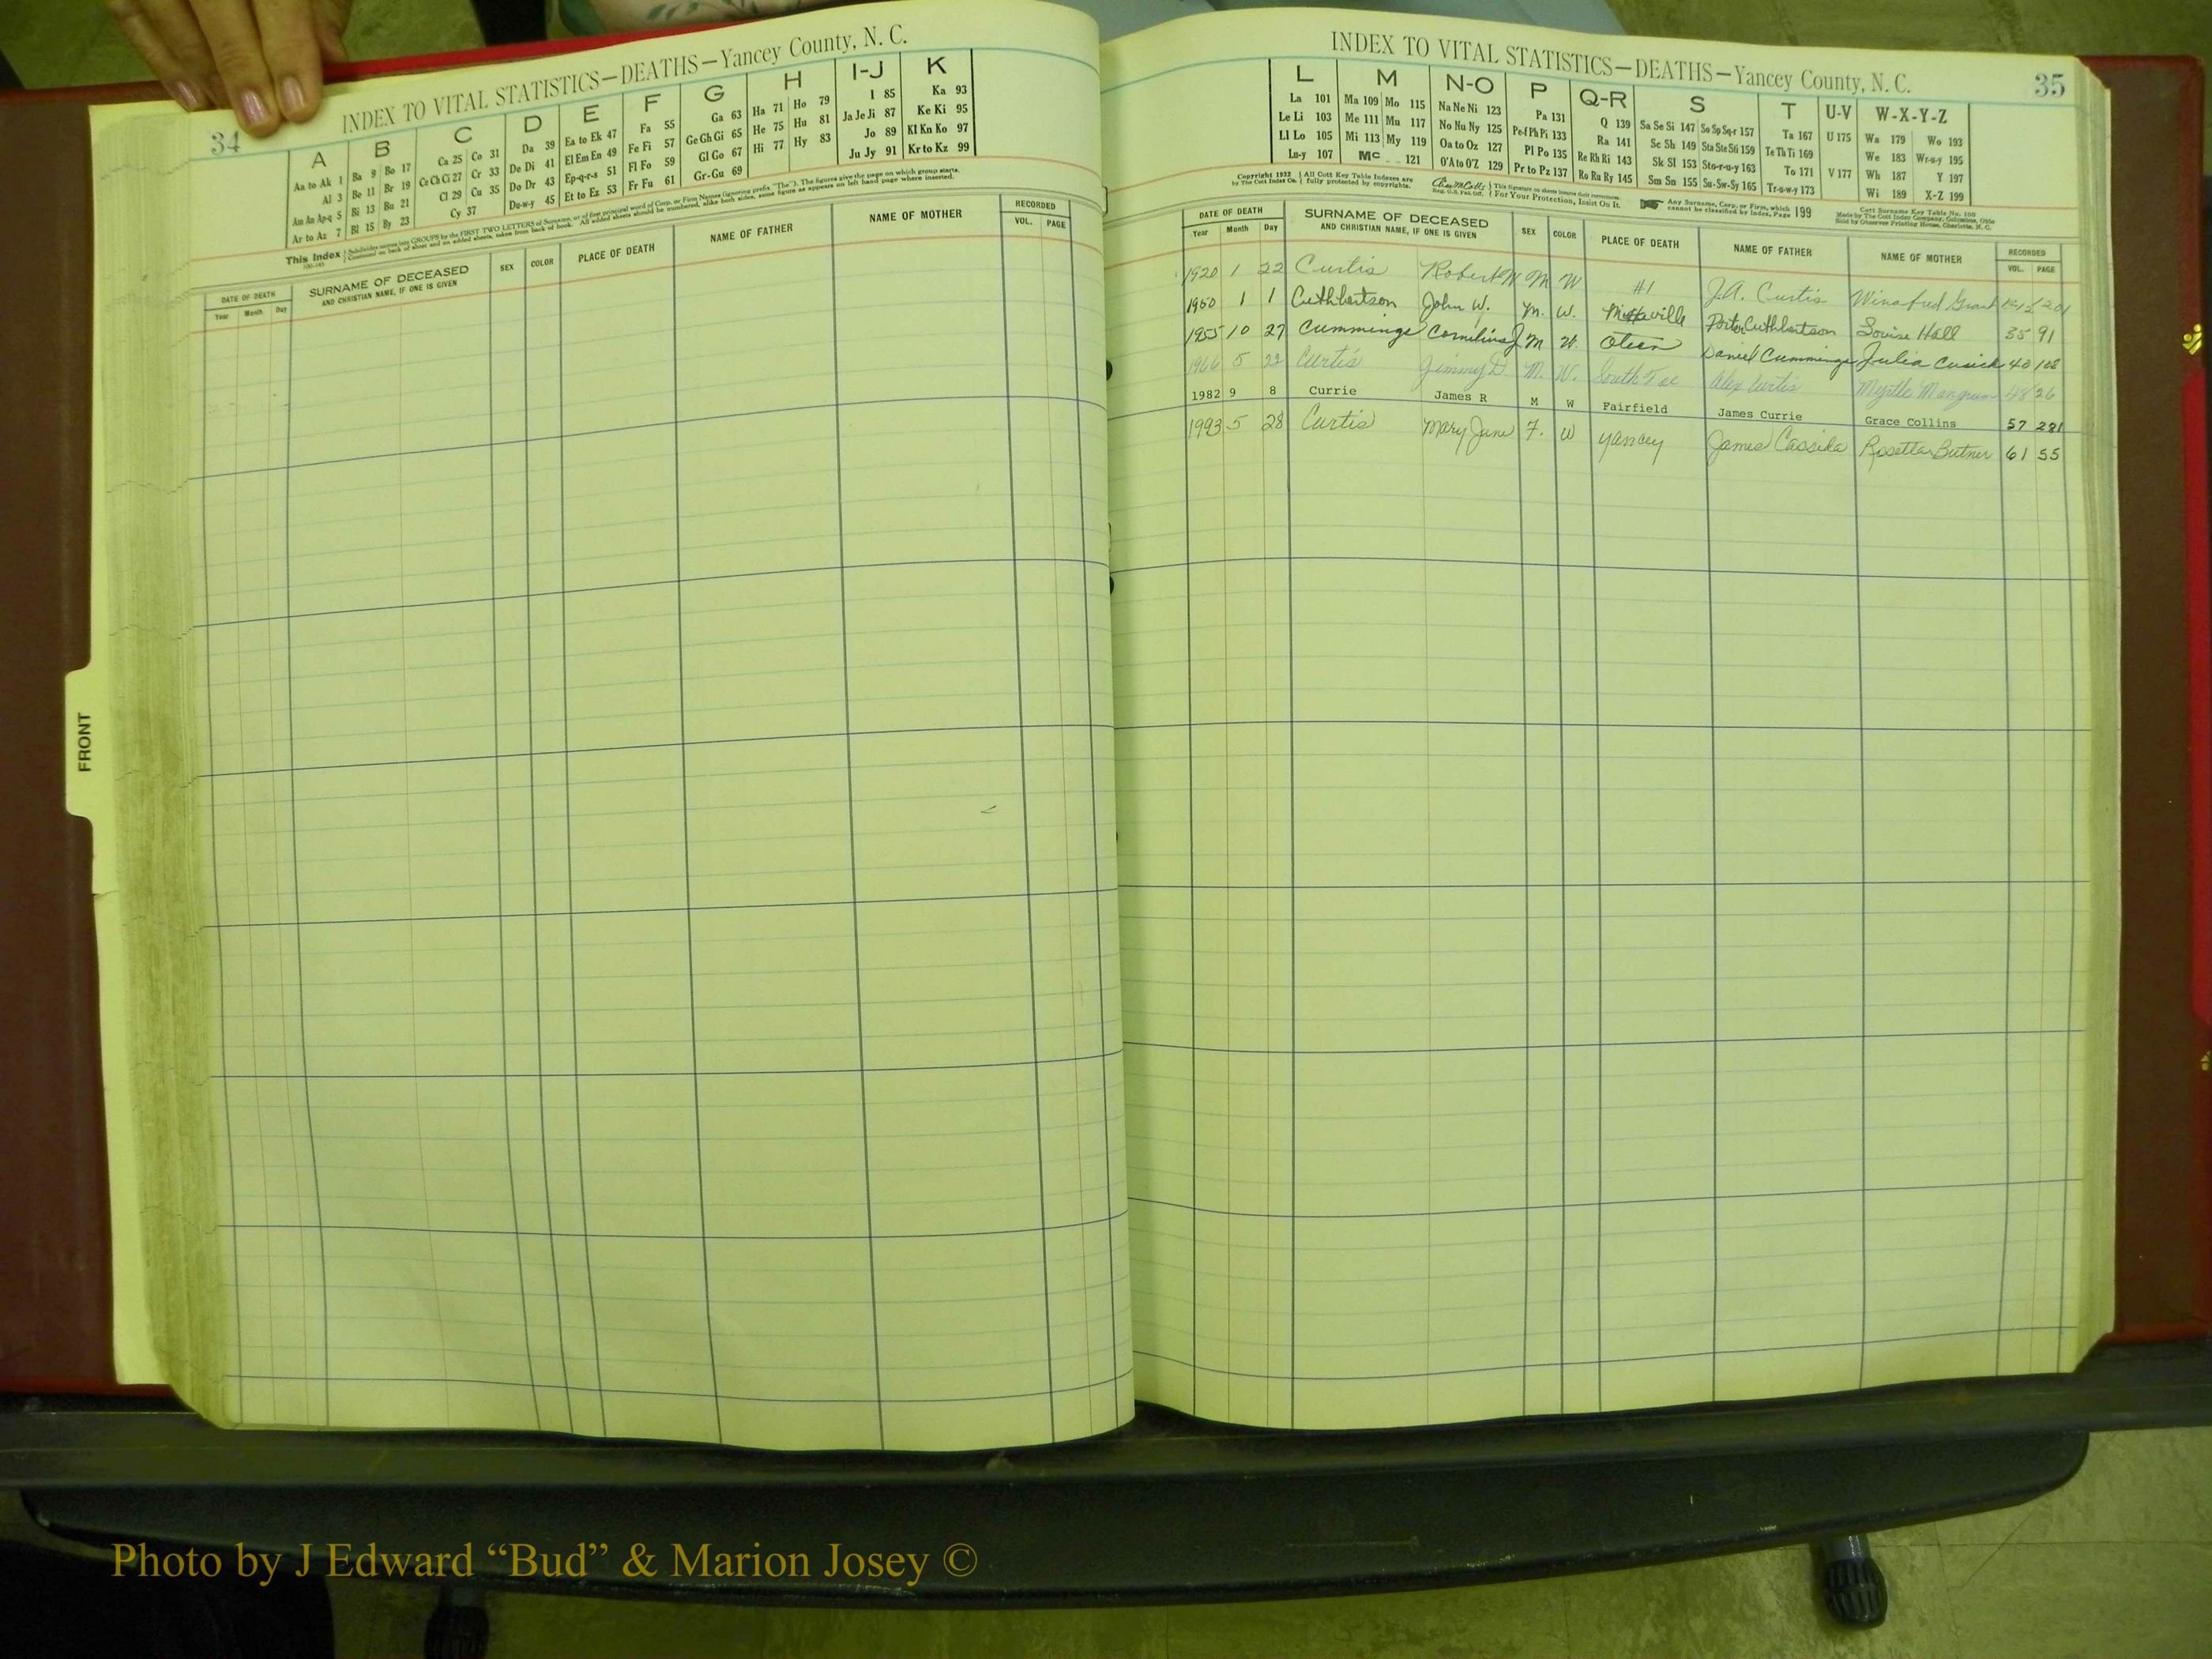 34
INDEX TO VITAL STATISTICS—DEATHS—Yancey County, N. C.
A B C D E F G H I-J K
Aa to Ak 1 Ba 9 Bo 17 Ca 25 Co 31 Da 39 Ea to Ek 47 Fa 55 Ga 63 Ha 71 Ho 79 I 85 Ka 93
Al 3 Be 11 Br 19 Ce Ch Ci 27 Cr 33 De Di 41 El Em En 49 Fe Fi 57 Ge Gh Gi 65 He 75 Hu 81 Ja Je Ji 87 Ke Ki 95
Am An Ap-q 5 Bi 13 Bu 21 Cl 29 Cu 35 Do Dr 43 Ep-q-r-s 51 Fl Fo 59 Gl Go 67 Hi 77 Hy 83 Jo 89 Kl Kn Ko 97
Ar to Az 7 Bl 15 By 23 Cy 37 Du-w-y 45 Et to Ez 53 Fr Fu 61 Gr-Gu 69 Ju Jy 91 Kr to Kz 99
This Index Subdivides names into GROUPS by the FIRST TWO LETTERS of Surname, or of first principal word of Corp. or Firm Names (ignoring prefix "The"). The figures give the page on which group starts.
Continued on back of sheet and on added sheets, taken from back of book. All added sheets should be numbered, alike both sides, same figure as appears on left hand page where inserted.
DATE OF DEATH SURNAME OF DECEASED AND CHRISTIAN NAME, IF ONE IS GIVEN SEX COLOR PLACE OF DEATH NAME OF FATHER NAME OF MOTHER RECORDED
Year Month Day VOL. PAGE
FRONT
INDEX TO VITAL STATISTICS—DEATHS—Yancey County, N. C.
35
L M N-O P Q-R S T U-V W-X-Y-Z
La 101 Ma 109 Mo 115 Na Ne Ni 123 Pa 131 Q 139 Sa Se Si 147 So Sp Sq-r 157 Ta 167 U 175 Wa 179 Wo 193
Le Li 103 Me 111 Mu 117 No Nu Ny 125 Pe-f Ph Pi 133 Ra 141 Sc Sh 149 Sta Ste Sti 159 Te Th Ti 169 We 183 Wr-u-y 195
Ll Lo 105 Mi 113 My 119 Oa to Oz 127 Pl Po 135 Re Rh Ri 143 Sk Sl 153 Sto-r-u-y 163 To 171 V 177 Wh 187 Y 197
Lu-y 107 Mc 121 O'A to O'Z 129 Pr to Pz 137 Ro Ru Ry 145 Sm Sn 155 Su-Sw-Sy 165 Tr-u-w-y 173 Wi 189 X-Z 199
Copyright 1932 by The Cott Index Co. All Cott Key Table Indexes are fully protected by copyrights. For Your Protection, Insist On It. Any Surname, Corp. or Firm, which cannot be classified by Index, Page 199
DATE OF DEATH SURNAME OF DECEASED AND CHRISTIAN NAME, IF ONE IS GIVEN SEX COLOR PLACE OF DEATH NAME OF FATHER NAME OF MOTHER RECORDED
Year Month Day VOL. PAGE
1920 1 22 Curtis Robert W M W #1 J.A. Curtis Winafred Grant 201
1950 1 1 Cuthbertson John W. M. W. Porter Cuthbertson Louise Hall 35 91
1955 10 27 Cummings Cornelius J M W. Oteen Daniel Cummings Julia Cusick 40 108
1966 5 22 Curtis Jimmy D. M. W. South Toe Alex Curtis Myrtle Mangrum 48 26
1982 9 8 Currie James R M W Fairfield James Currie Grace Collins 57 281
1993 5 28 Curtis Mary June F. W Yancey James Cassida Rosetta Butner 61 55
Photo by J Edward “Bud” & Marion Josey ©